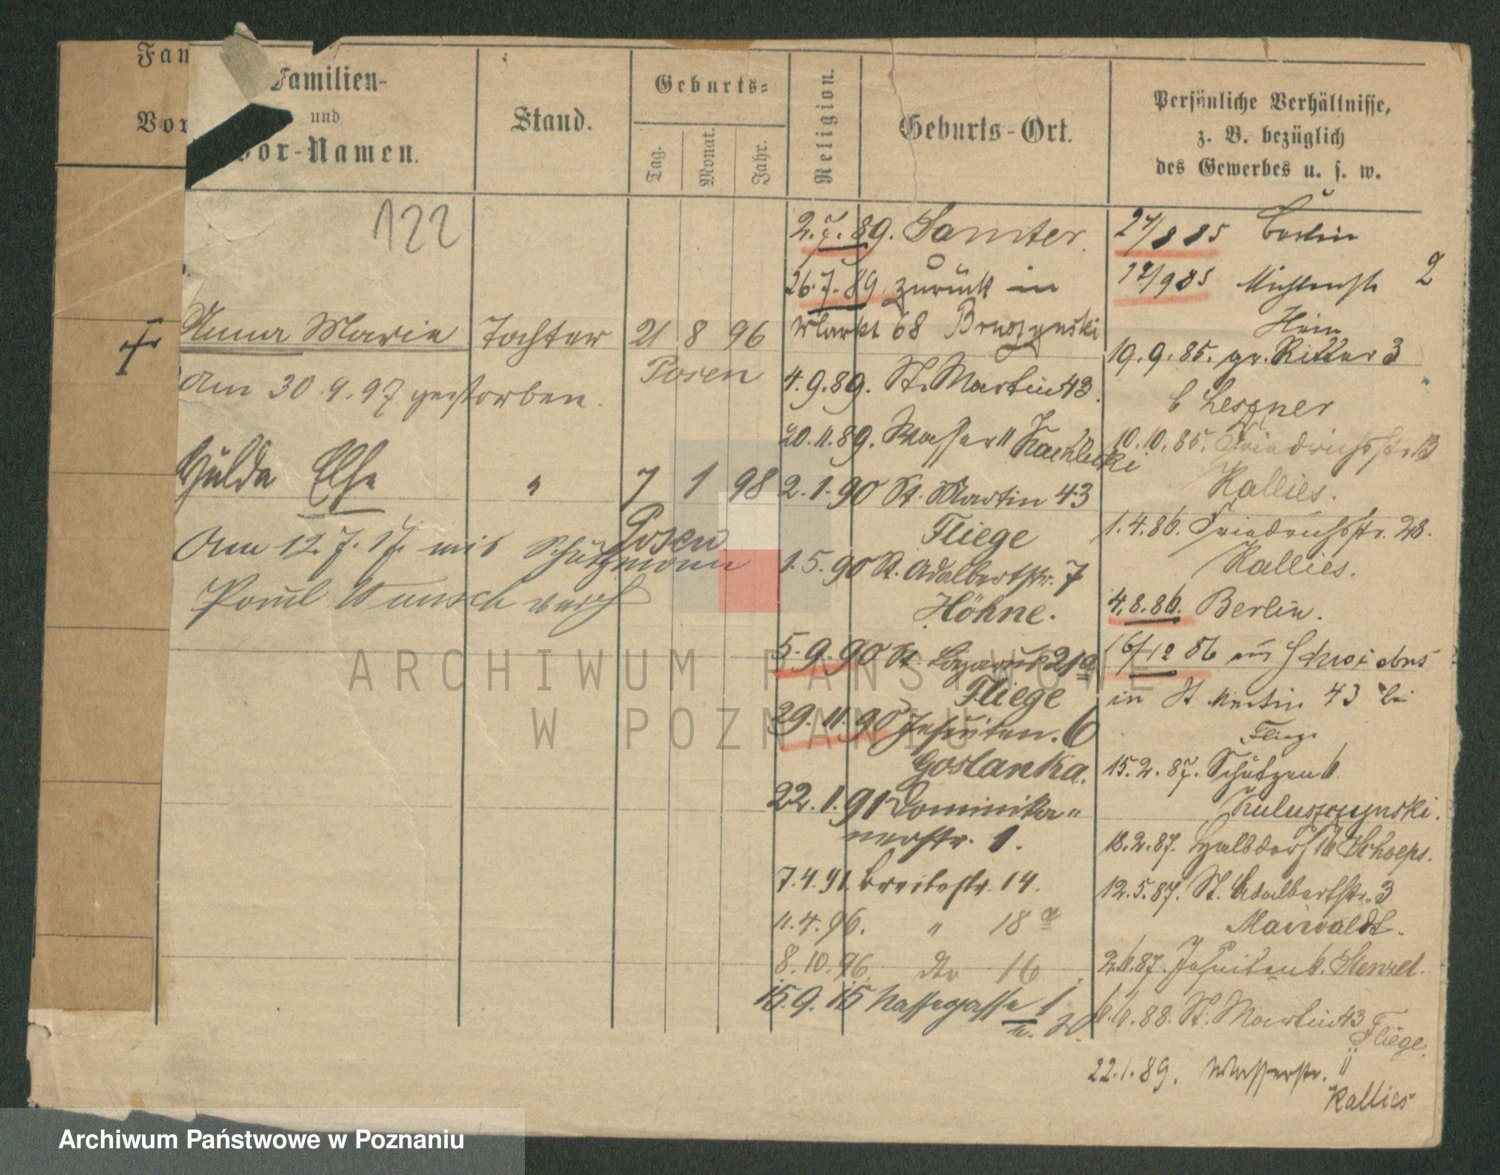 Fam
Vor
Familien-
und
Vor-Namen.
Stand.
Geburts-
Tag.
Monat.
Jahr.
Religion.
Geburts-Ort.
Persönliche Verhältnisse,
z. B. bezüglich
des Gewerbes u. s. w.
122
Anna Marie Tochter 21 8 96
Posen
Am 30.9.97 gestorben.
Hulda Else " 7 1 98
Posen
Am 12.7.17 mit Schutzmann
Paul Wunsch verh
2.7.89. Samter.
26.7.89. zurück in
Markt 68
4.9.89. St. Martin 43.
20.11.89. Wasser 11
2.1.90 St. Martin 43
Fliege
1.5.90 St. Adalbertstr. 7
Höhne.
5.9.90 St. Lazarus 21a
Fliege
29.11.90 Jesuiten. 6
Goslanka.
22.1.91 Dominika-
nerstr. 1.
7.4.91. Breitestr. 14.
11.4.96. " 18a
8.10.96 dto 16
15.9.15 Nassegasse 1
27/8 85 Berlin
17/9 85
19.9.85. gr. Ritter 3
b Leszner
10.10.85. Friedrichsstr. 13
Kallies.
1.4.86. Friedrichsstr. 28.
Kallies.
4.8.86. Berlin.
16/12 86 aus
in St Martin 43 bei
Fliege
15.2.87. Schützen 6.
18.2.87. Halbdorf 16 Schoeps.
12.5.87. St. Adalbertstr. 3
Maiwaldt.
2.6.87. Jesuiten 6. Stenzel.
6.6.88. St. Martin 43
Fliege.
22.1.89. Wasserstr. 11
Kallies
ARCHIWUM PAŃSTWOWE
W POZNANIU
Archiwum Państwowe w Poznaniu